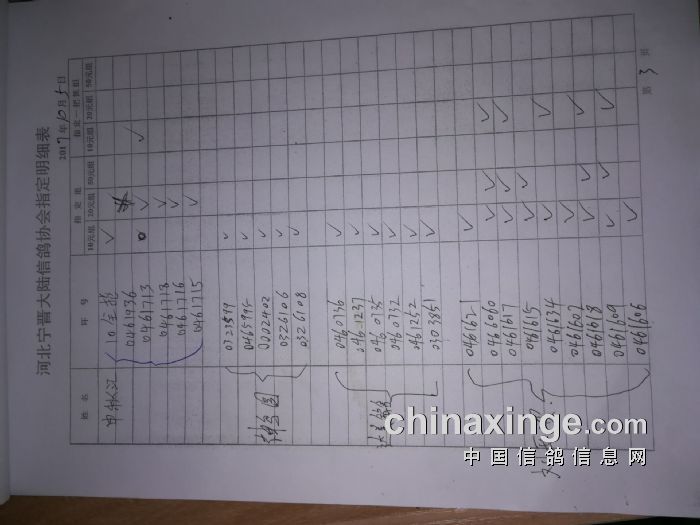 河北宁晋大陆信鸽协会指定明细表
2017年10月5日
姓名 环号 指定组 指定一把抓组
10元组 20元组 50元组 10元组 20元组 50元组
申秋江 10全指
0461936
0461713
0461718
0461716
0461715
0465995
0002402
0326106
0326108
0460736
0461237
0460735
0460732
0461252
0303851
0461621
0466060
0461617
0461615
0461634
0461607
0461618
0461609
0461606
第3页
chinaxinge.com
中国信鸽信息网